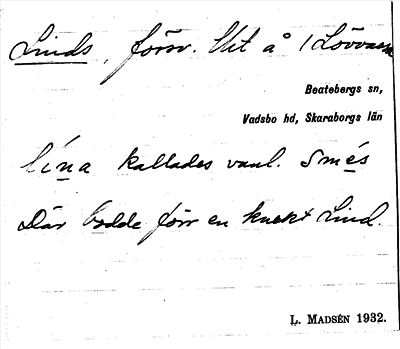 Linds, försv. Ut å / Lövåsen
Beatebergs sn,
Vadsbo hd, Skaraborgs län
lína kallades vanl. Smés
Där bodde förr en knekt Lind.
L. MADSÉN 1932.